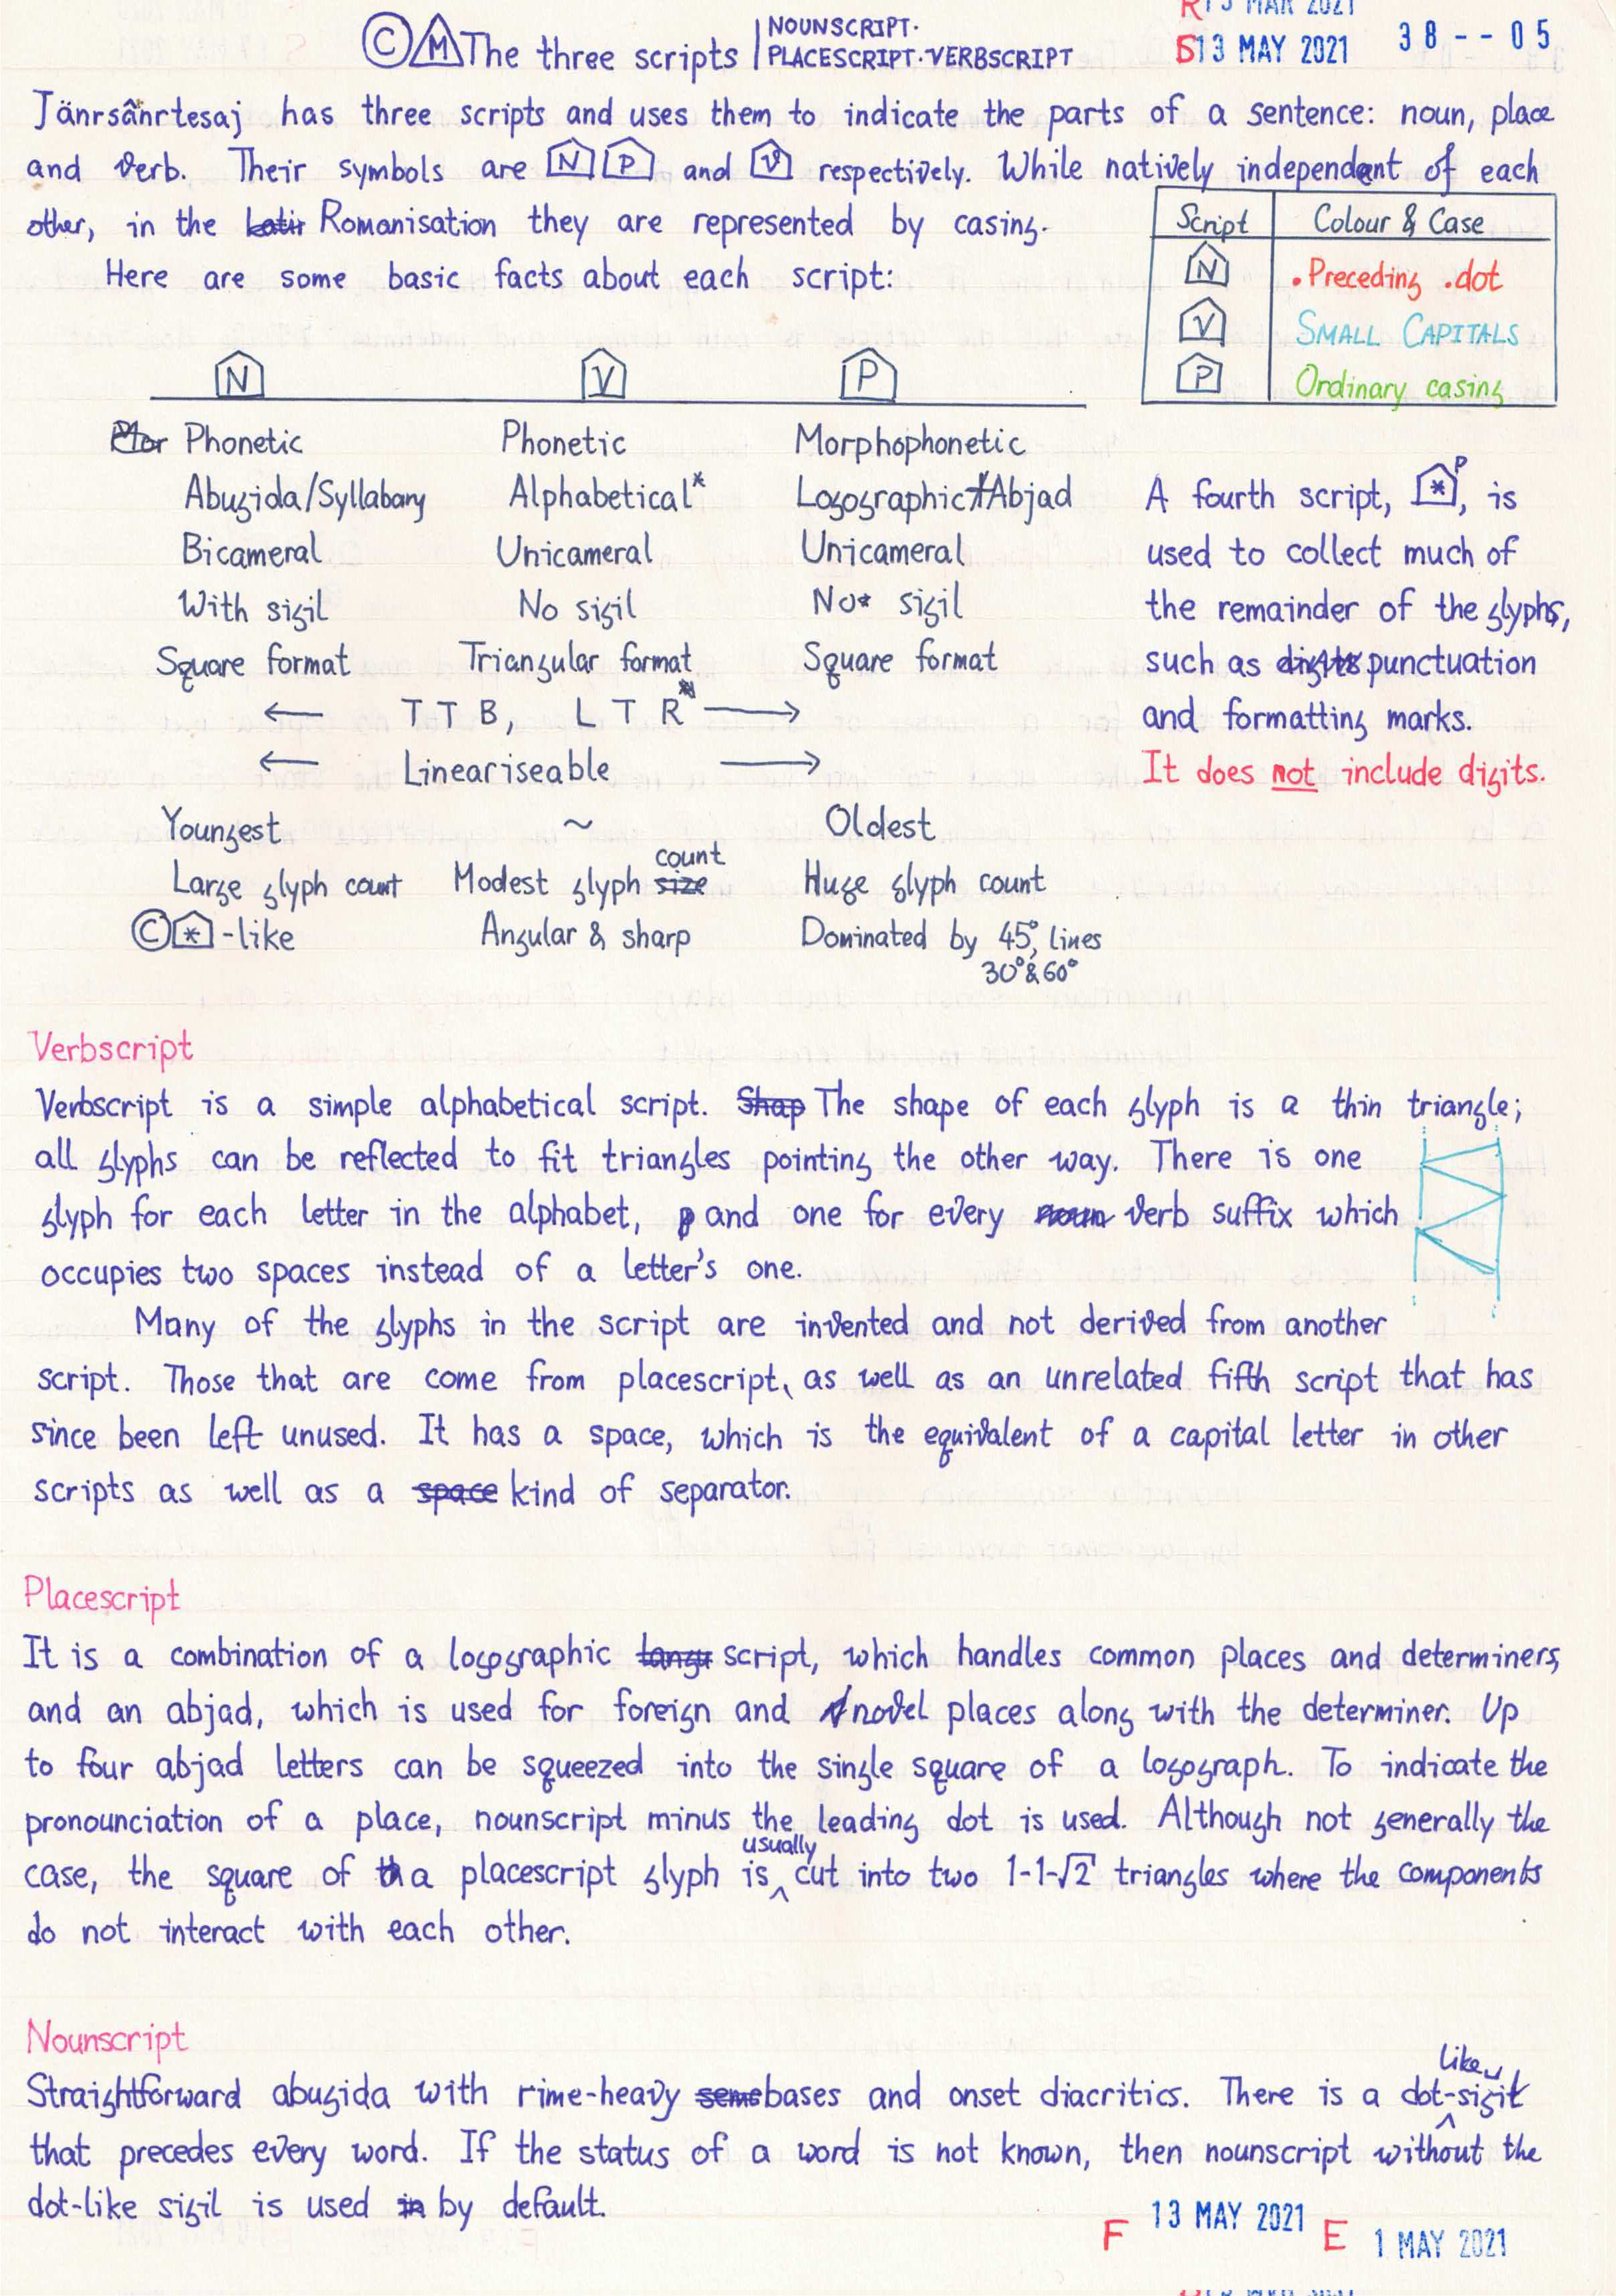 R13 MAR 2021
©M The three scripts | NOUNSCRIPT· PLACESCRIPT·VERBSCRIPT
S13 MAY 2021 38--05
Jänrsânrtesaj has three scripts and uses them to indicate the parts of a sentence: noun, place
and verb. Their symbols are N P and V respectively. While natively independent of each
other, in the Romanisation they are represented by casing.
Here are some basic facts about each script:
Script Colour & Case
N .Preceding .dot
V SMALL CAPITALS
P Ordinary casing
N V P
Phonetic Phonetic Morphophonetic
Abugida/Syllabary Alphabetical* Logographic+Abjad
Bicameral Unicameral Unicameral
With sigil No sigil No sigil
Square format Triangular format Square format
← TTB, LTR →
← Lineariseable →
Youngest ~ Oldest
Large glyph count Modest glyph count Huge glyph count
©*-like Angular & sharp Dominated by 45°, lines
30°&60°
A fourth script, *P, is
used to collect much of
the remainder of the glyphs,
such as punctuation
and formatting marks.
It does not include digits.
Verbscript
Verbscript is a simple alphabetical script. The shape of each glyph is a thin triangle;
all glyphs can be reflected to fit triangles pointing the other way. There is one
glyph for each letter in the alphabet, and one for every verb suffix which
occupies two spaces instead of a letter's one.
Many of the glyphs in the script are invented and not derived from another
script. Those that are come from placescript, as well as an unrelated fifth script that has
since been left unused. It has a space, which is the equivalent of a capital letter in other
scripts as well as a kind of separator.
Placescript
It is a combination of a logographic script, which handles common places and determiners,
and an abjad, which is used for foreign and novel places along with the determiner. Up
to four abjad letters can be squeezed into the single square of a logograph. To indicate the
pronounciation of a place, nounscript minus the leading dot is used. Although not generally the
case, the square of a placescript glyph is usually cut into two 1-1-√2 triangles where the components
do not interact with each other.
Nounscript
Straightforward abugida with rime-heavy bases and onset diacritics. There is a dot-like sigil
that precedes every word. If the status of a word is not known, then nounscript without the
dot-like sigil is used by default.
F 13 MAY 2021 E 1 MAY 2021